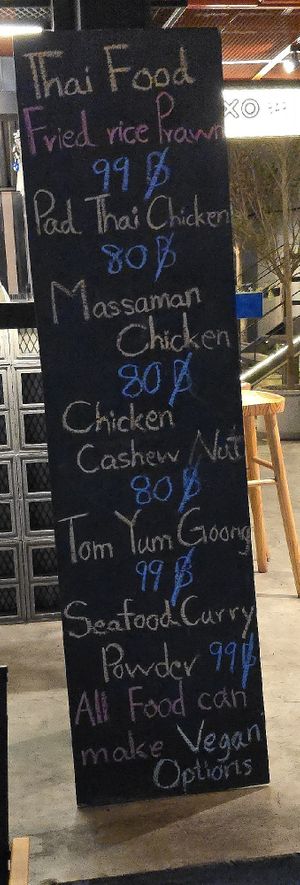 Thai Food
Fried rice Prawn
99 ฿
Pad Thai Chicken
80 ฿
Massaman
Chicken
80 ฿
Chicken
Cashew Nut
80 ฿
Tom Yum Goong
99 ฿
Seafood Curry
Powder 99฿
All Food can
make Vegan
Options
XO BAR